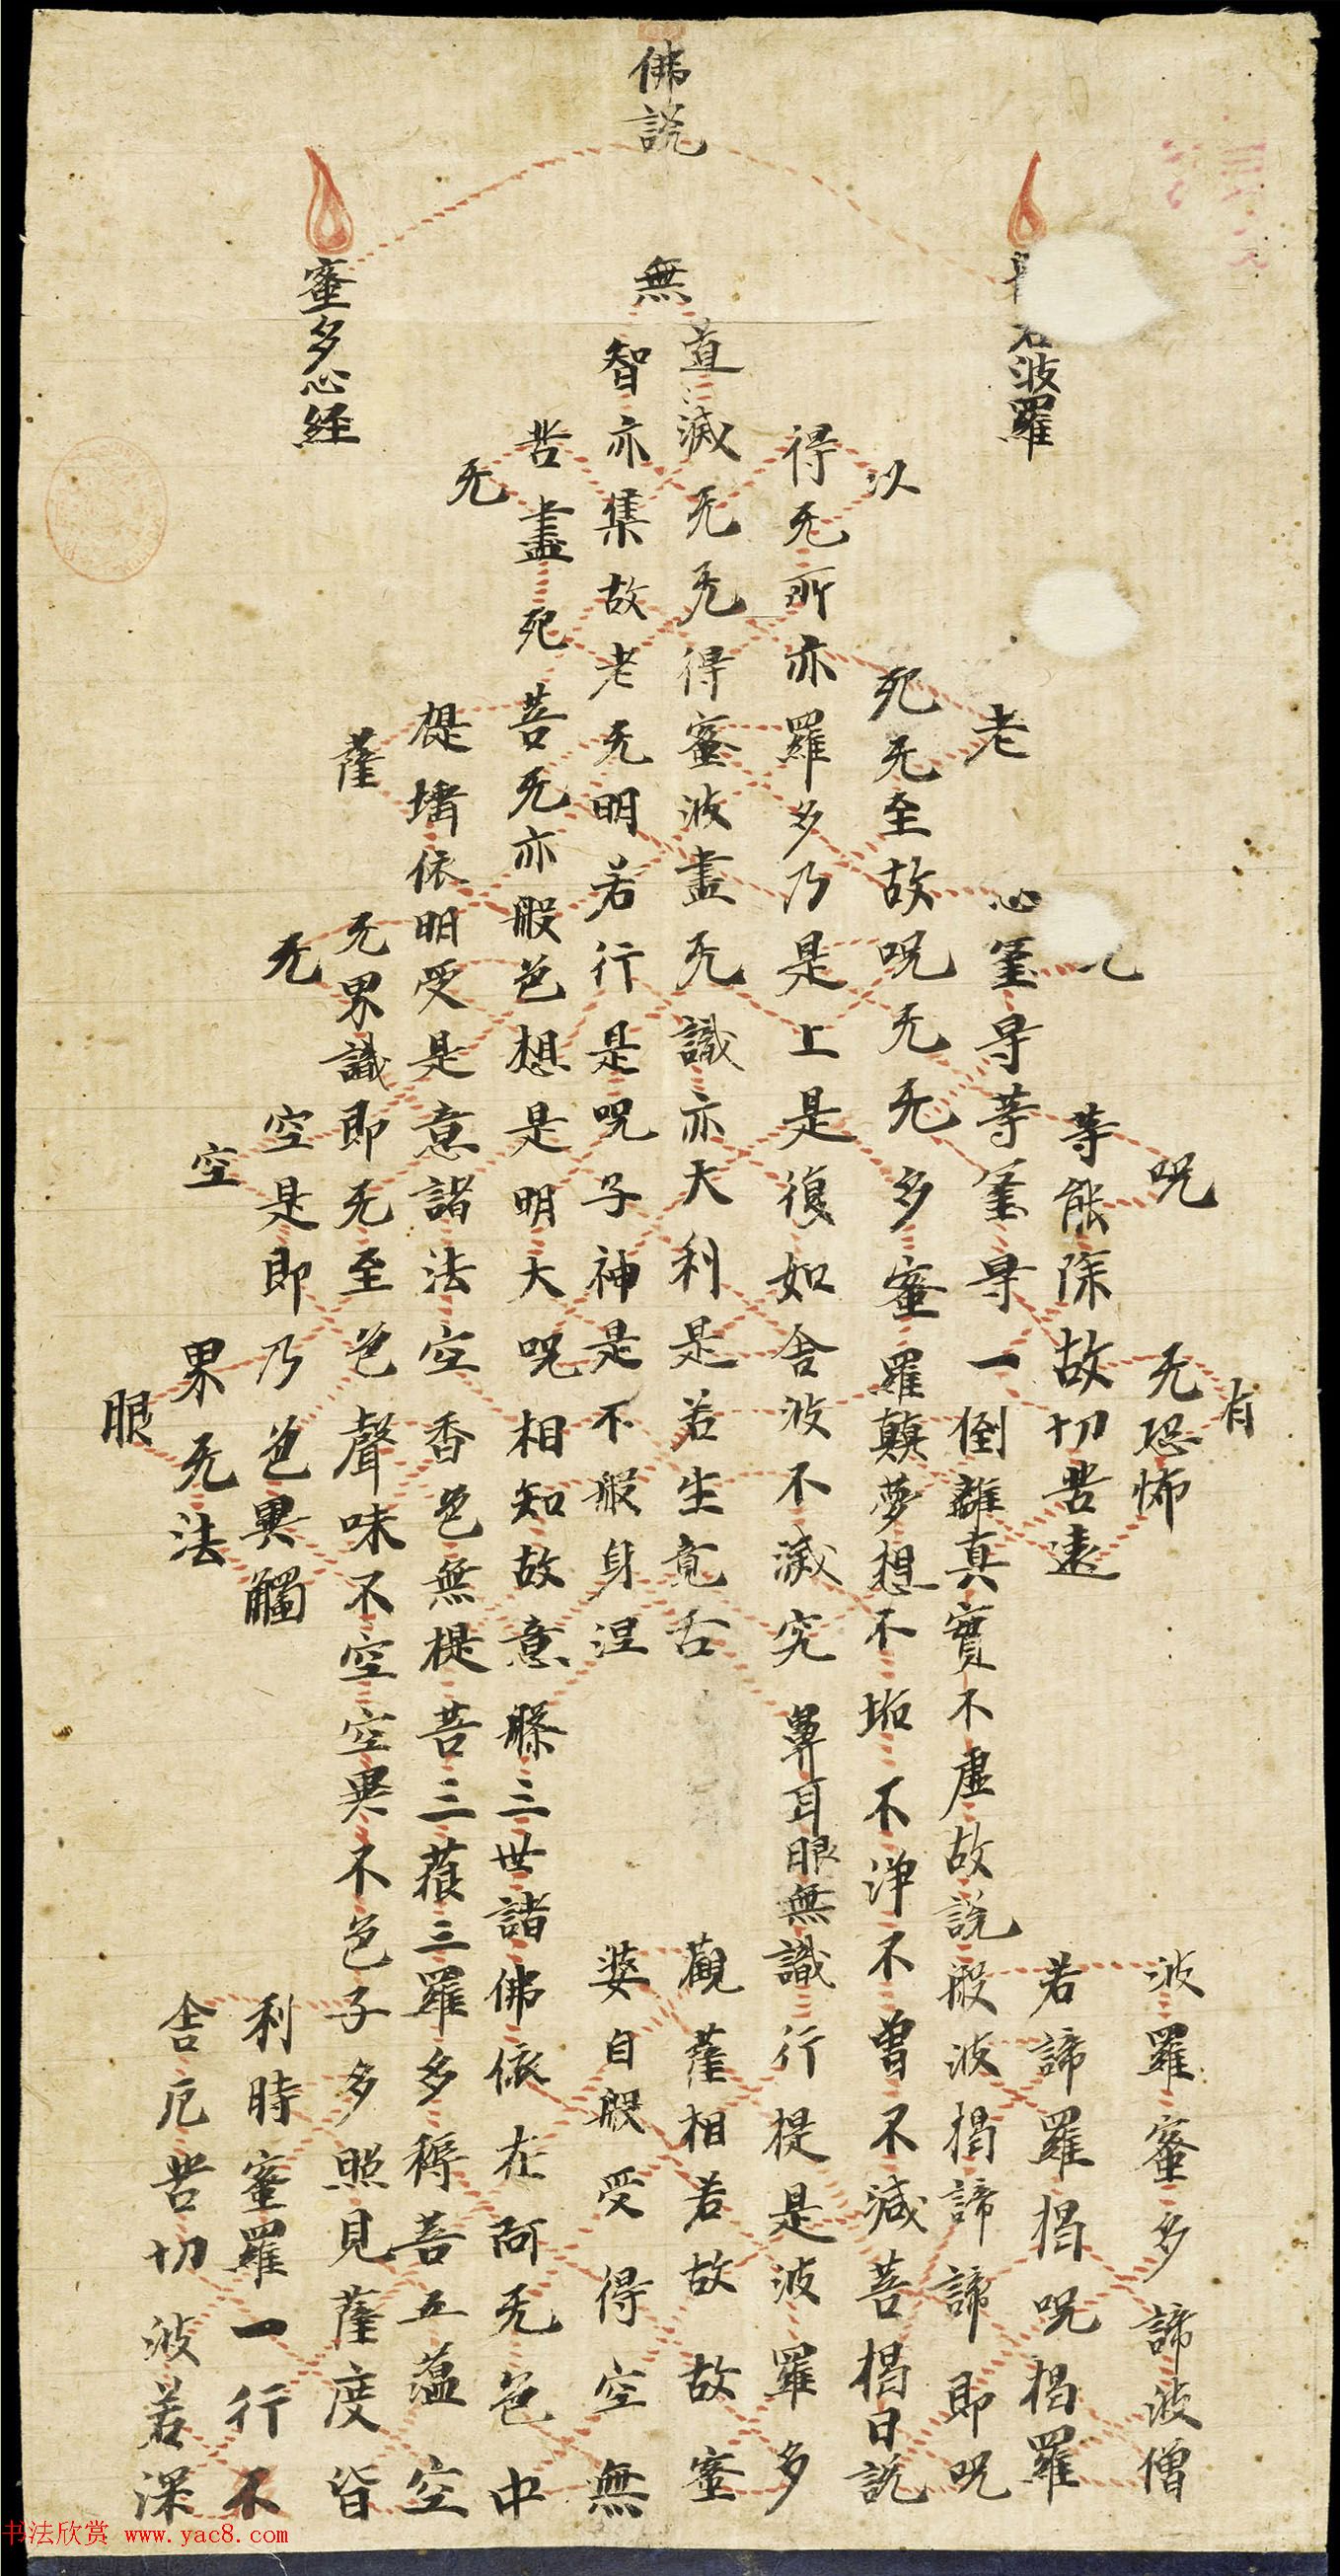 佛說
若波羅
蜜多心經
有
呪
无恐怖
波羅蜜多諦波僧
等能除故切苦遠
若諦羅揭呪揭羅
老
心罣㝵等罣㝵一倒離真實不虛故說般波揭諦諦即呪
以
死无至故呪无无多蜜羅顛夢想不垢不淨不曾不減菩揭曰說
得无所亦羅多乃是上是復如舍波不滅究
鼻耳眼無識行提是波羅多
無
道滅无无得蜜波盡无識亦大利是若生竟舌
觀薩相若故故蜜
智亦集故老无明若行是呪子神是不般身涅
婆自般受得空無
苦盡死菩无亦般色想是明大呪相知故意槃三世諸佛依在阿无色中
无
提埵依明受是意諸法空香色無提菩三藐三羅多耨菩五蘊空
薩
无界識即无至色聲味不空空異不色子多照見薩度皆
无
空是即乃色異觸
利時蜜羅一行不
空
界无法
舍厄苦切波若深
眼
书法欣赏 www.yac8.com